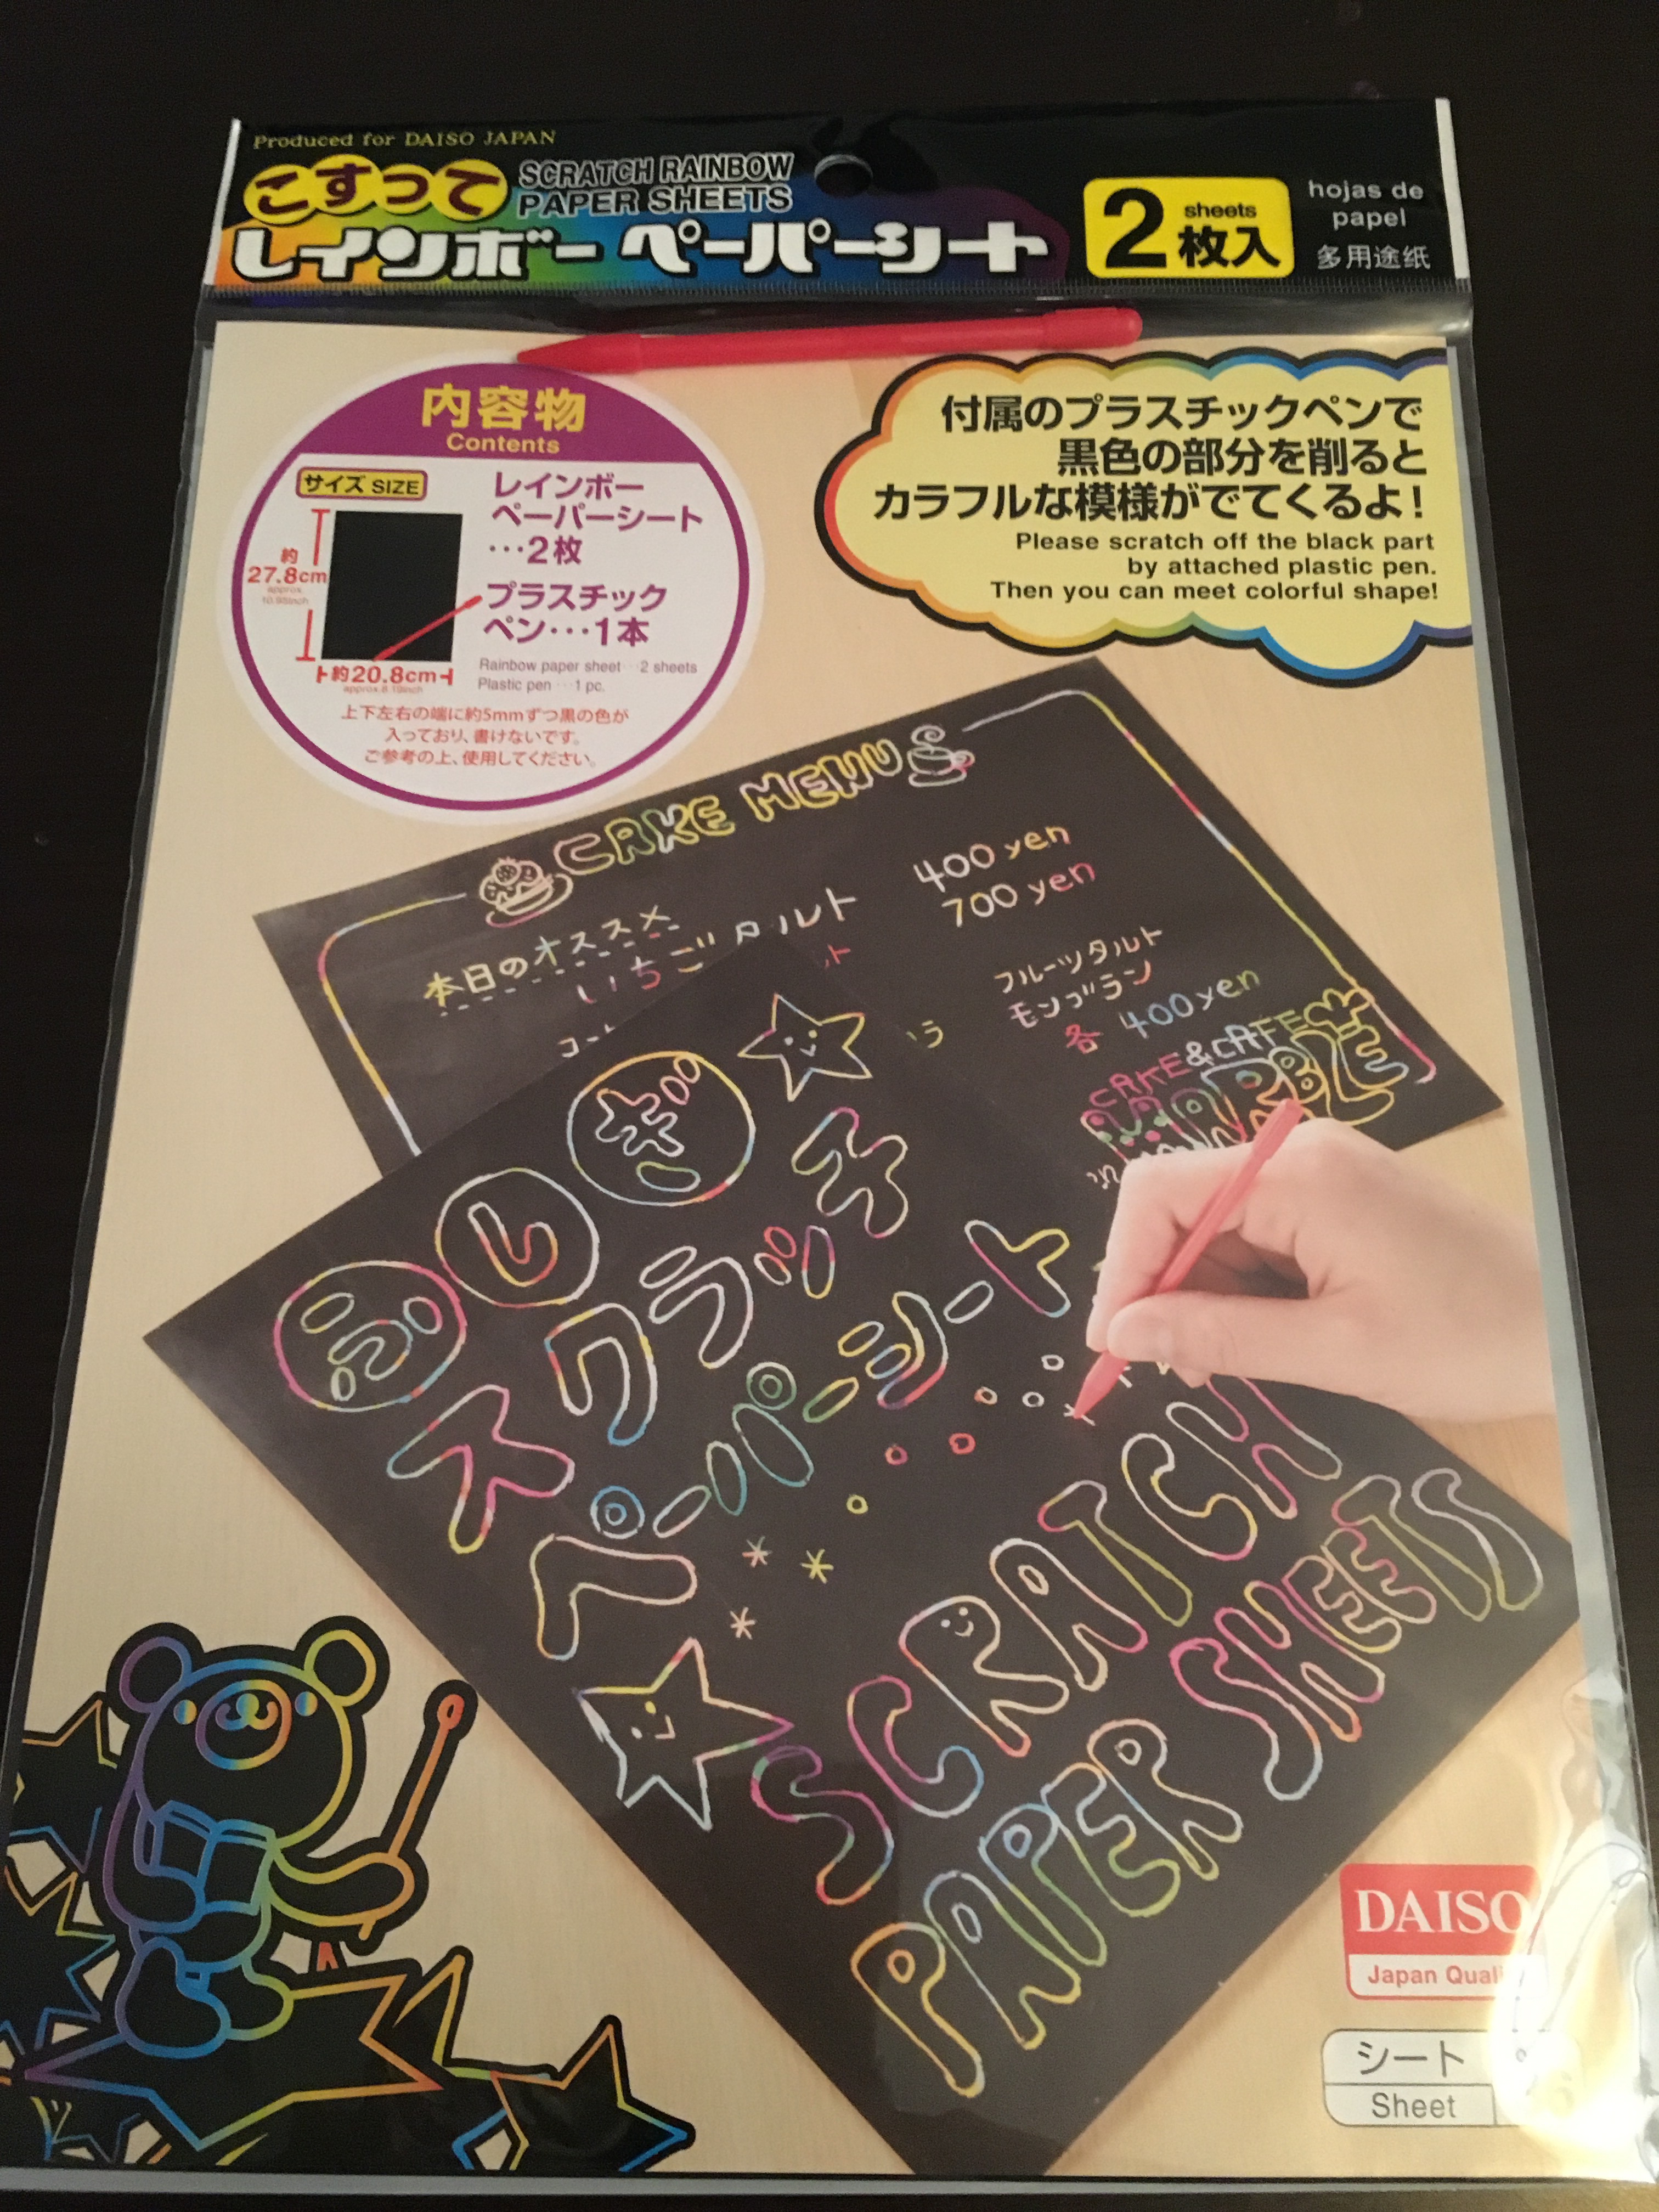 Produced for DAISO JAPAN
こすって
SCRATCH RAINBOW
PAPER SHEETS
レインボーペーパーシート
2 sheets
枚入
hojas de
papel
多用途纸
内容物
Contents
サイズ SIZE
約
27.8cm
approx.
約20.8cm
レインボー
ペーパーシート
…2枚
プラスチック
ペン…1本
Rainbow paper sheet…2 sheets
Plastic pen…1 pc.
上下左右の端に約5mmずつ黒の色が
入っており、書けないです。
ご参考の上、使用してください。
付属のプラスチックペンで
黒色の部分を削ると
カラフルな模様がでてくるよ！
Please scratch off the black part
by attached plastic pen.
Then you can meet colorful shape!
CAKE MENU
本日のオススメ
いちごタルト
400 yen
700 yen
フルーツタルト
モンブラン
各 400 yen
CAKE&CAFE
MARBLE
ふしぎ
スクラッチ
ペーパーシート
SCRATCH
PAPER SHEETS
DAISO
Japan Quali
シート
Sheet